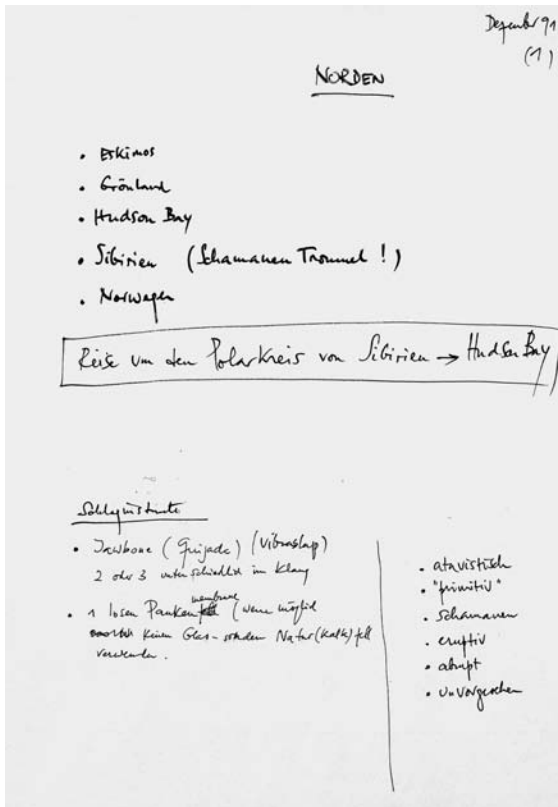 Dezember 91
(1)
NORDEN
• Eskimos
• Grönland
• Hudson Bay
• Sibirien (Schamanen Trommel !)
• Norwegen
Reise um den Polarkreis von Sibirien → Hudson Bay
Schlaginstrumente
• Jawbone (Quijada) (Vibraslap)
2 oder 3 unterschiedlich im Klang
membrane
• 1 losen Pauken (wenn möglich
keinen Glas- sondern Natur(Kalb)fell
verwenden.
• atavistisch
• "primitiv"
• Schamanen
• eruptiv
• abrupt
• unvorgesehen